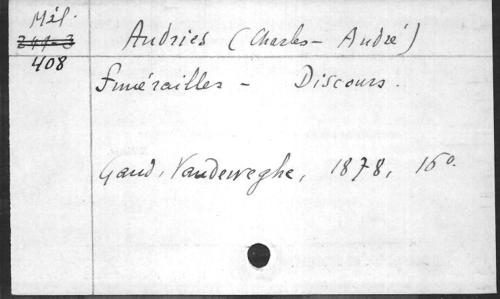 Mél.
241-3
408
Andries (Charles-André)
Funérailles - Discours.
Gand, Vanderweghe, 1878, 16°.